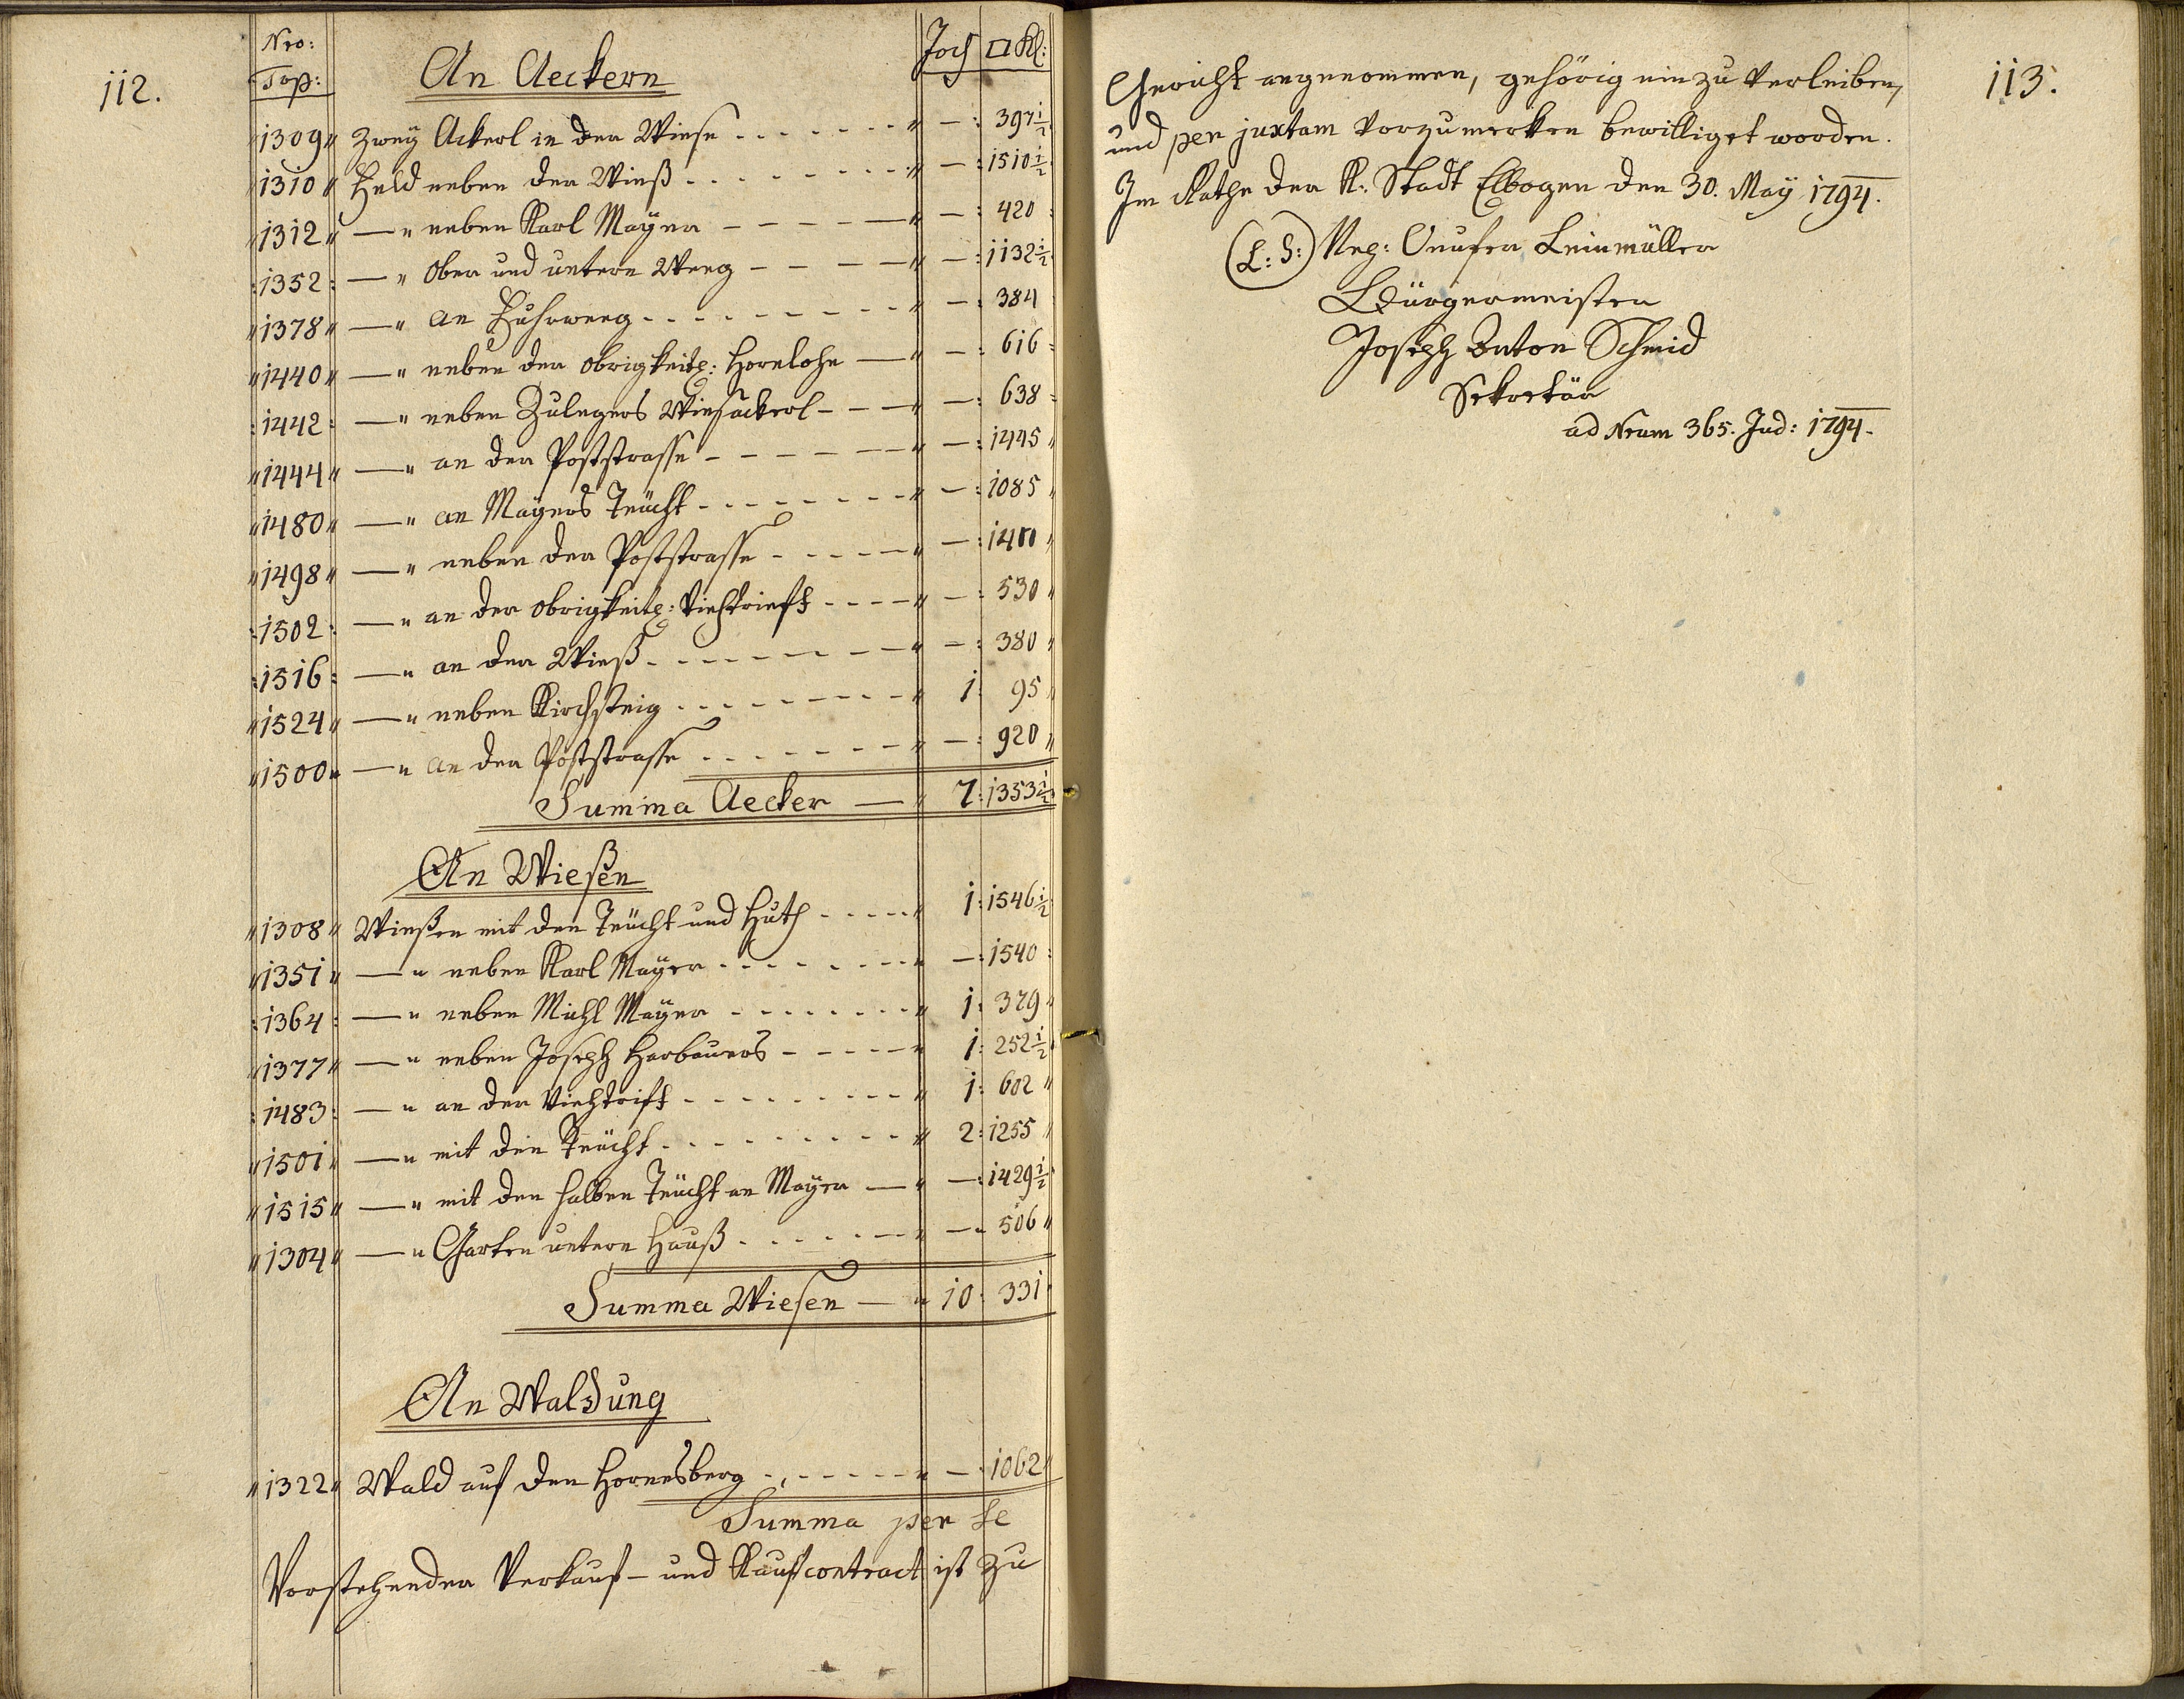 112.
Nro: Top: An Aeckern Joch □ Kl:
1309 Zweÿ Ackerl in der Wiese - - - - - - - " — : 397½
1310 Feld neben der Wieß - - - - - - - " — : 1510½
1312 — " neben Karl Maÿer - - - - — " — : 420
1352 : — " Ober und untern Weeg - - - — " — : 1132½
1378 — " an Fuhrweeg - - - - - - - - - " — : 384
1440 — " neben der obrigkeitl: Hornlohe — " — : 616
1442 : — " neben Zulegers Wiesackerl - - — " — : 638
1444 — " an der Poststrasse - - - - - — " — : 1445
1480 — " an Maÿers Teücht - - - - - - - " — : 1085
1498 — " neben der Poststrasse - - - - — " —
1502 : — " an der obrigkeitl: Viehtrieft - - - — " — : 530
1516 : — " an der Wieß - - - - - - - — " — : 380
1524 — " neben Kirchsteig - - - - - - - - " 1 : 95
1500 — " an der Poststrasse - - - - - - - " — : 920
Summa Aecker — " 7 : 1353½
An Wießen
1308 Wießen mit den Teücht und Huth - - - - - " 1 : 1546½
1351 — " neben Karl Maÿer - - - - - - - - " — : 1540
1364 : — " neben Michl Maÿer - - - - - - - - " 1 : 379
1377 — " neben Joseph Harbauers - - - - - " 1 : 252½
1483 : — " an der Viehtrift - - - - - - - - - " 1 : 602
1501 — " mit den Teücht - - - - - - - - - " 2 : 1255
1515 — " mit den halben Teücht an Maÿer — " — : 1429½
1304 — " Garten untern Hauß - - - - - - - " — " 506
Summa Wiesen — " 10 : 331
An Waldung
1322 Wald auf den Hornesberg - - - - - - - " — . 1062
Summa per se
Vorstehender Verkauf- und Kaufcontract ist zu
113.
Gericht angenommen, gehörig einzuverleiben,
und per juxtam vorzumerken bewilliget worden.
Im Rathe der K: Stadt Elbogen den 30. Maÿ 1794.
(L: S:) Nep: Onufer Leinmüller
Bürgermeister
Joseph Anton Schmid
Sekretär
ad Nrum 365. Jud: 1794.